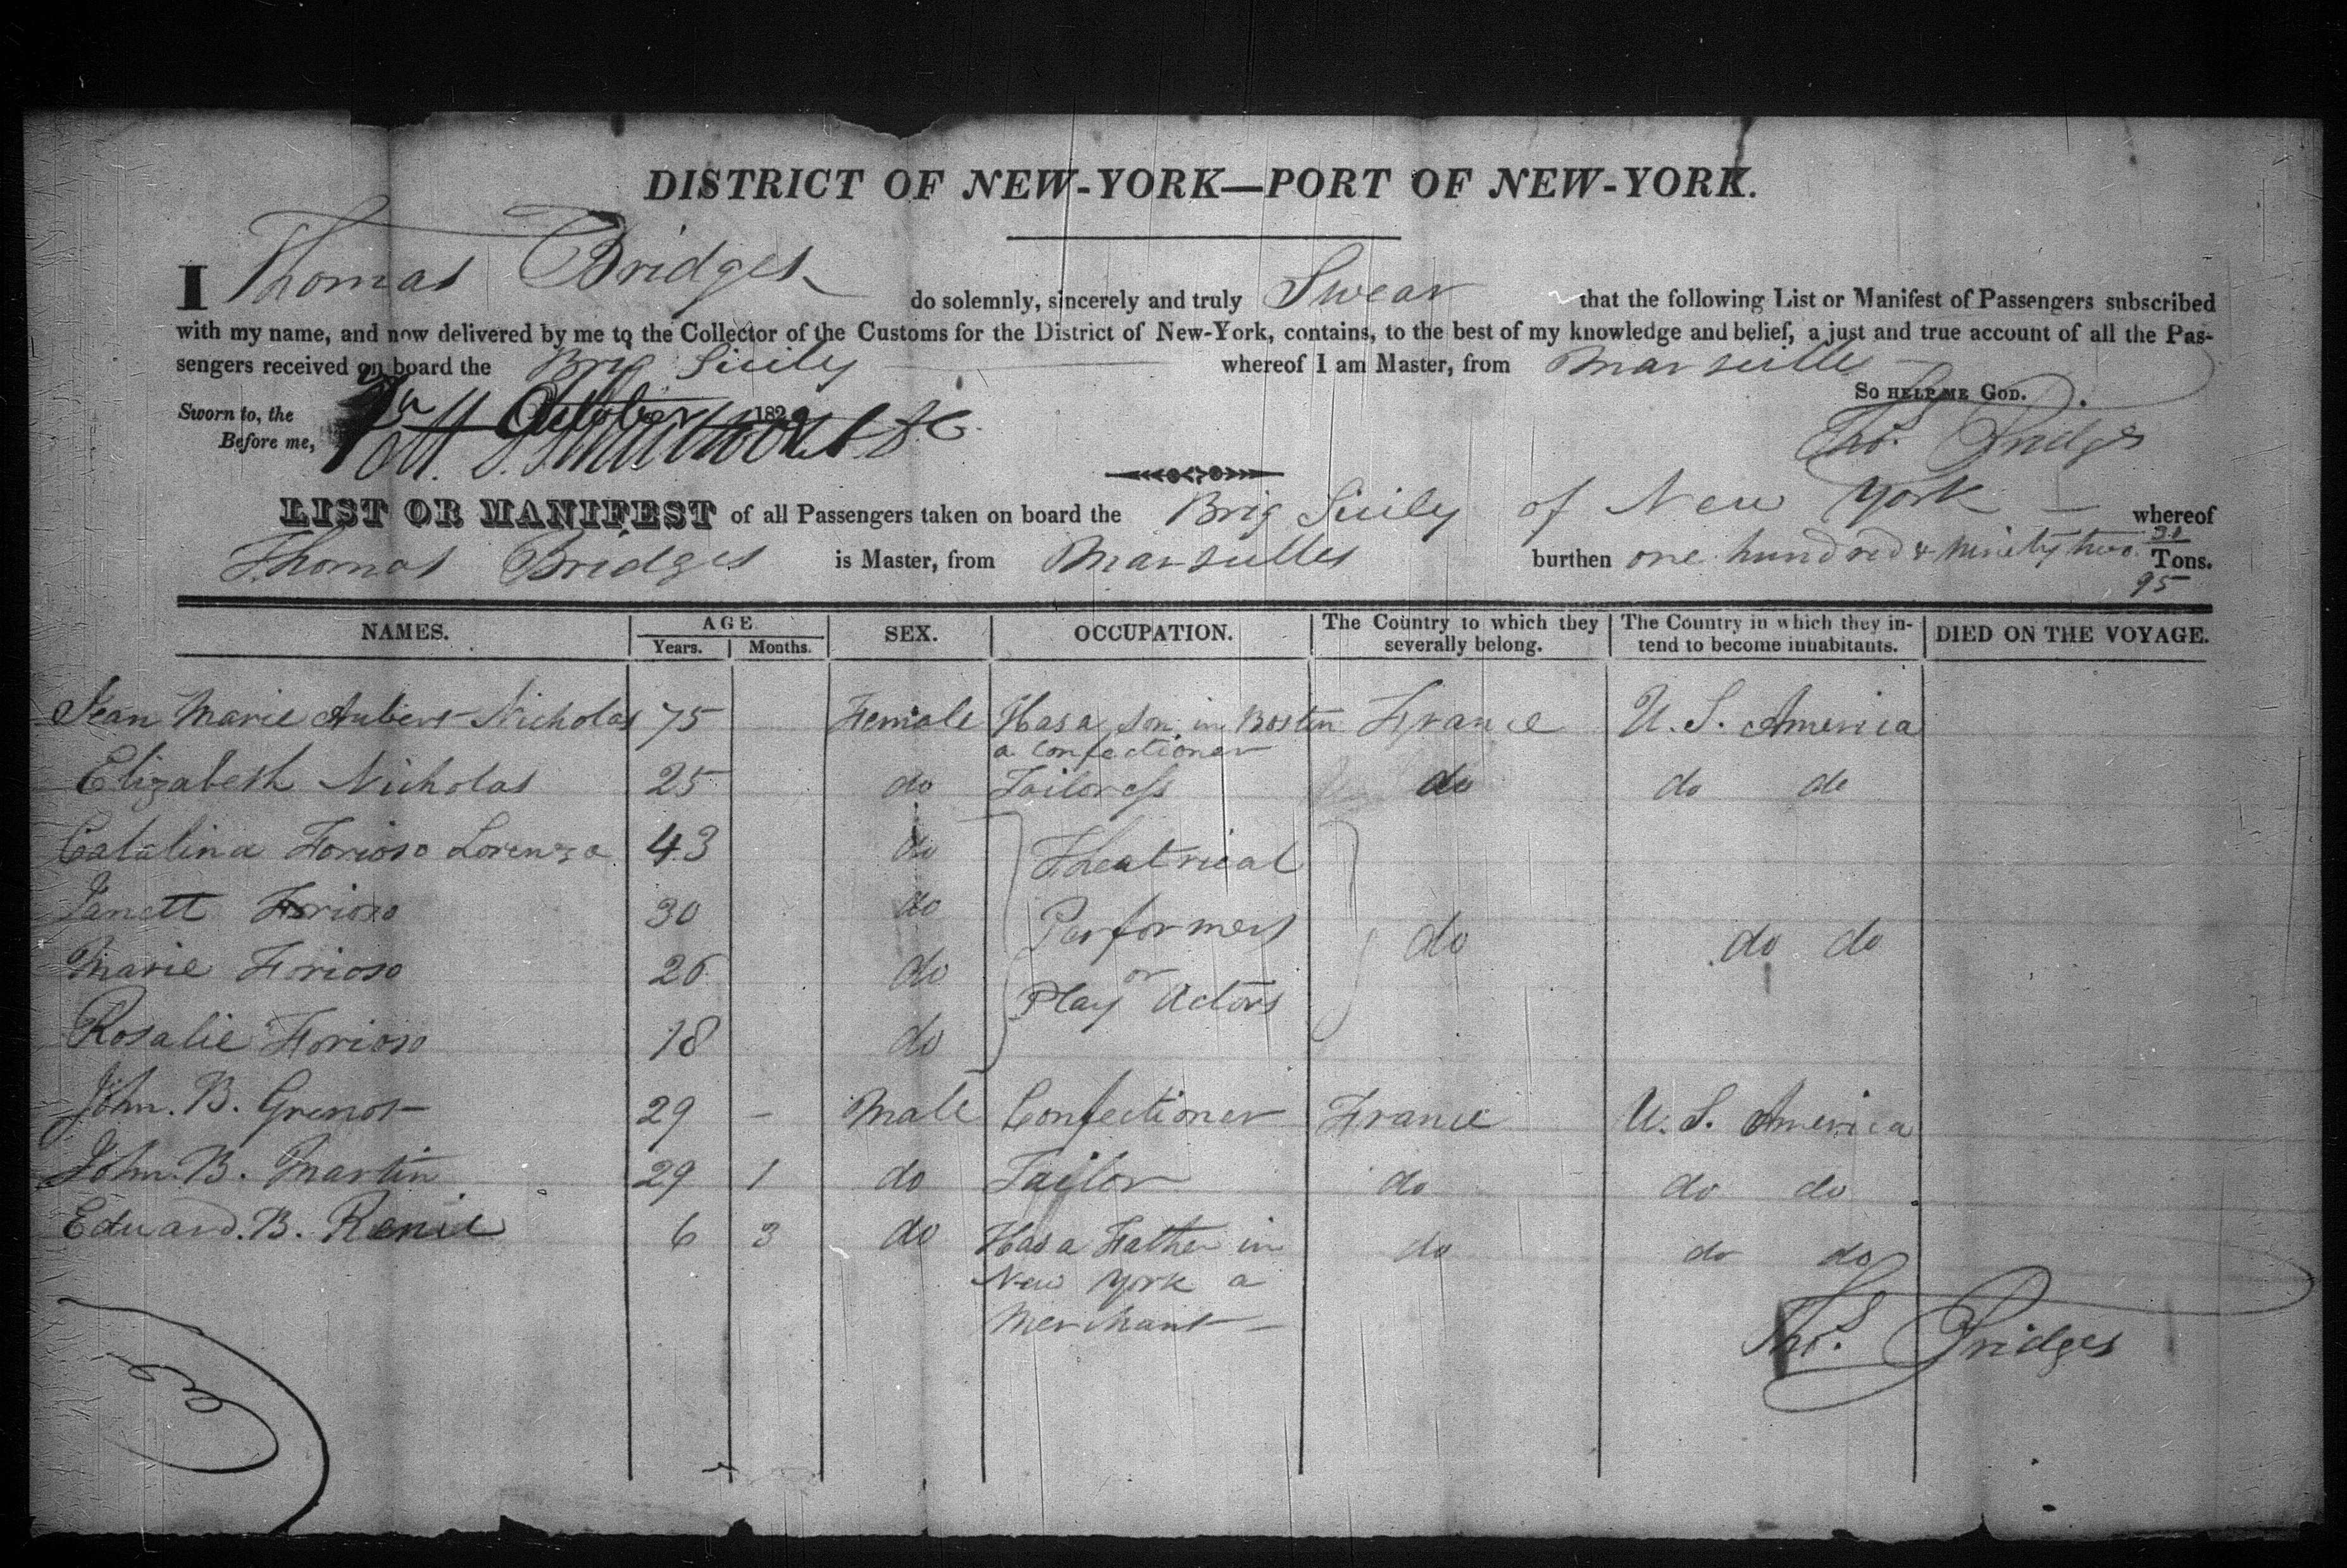 DISTRICT OF NEW-YORK—PORT OF NEW-YORK.
I Thomas Bridges do solemnly, sincerely and truly Swear that the following List or Manifest of Passengers subscribed
with my name, and now delivered by me to the Collector of the Customs for the District of New-York, contains, to the best of my knowledge and belief, a just and true account of all the Pas-
sengers received on board the Brig Sicily whereof I am Master, from Marseilles
So HELP ME GOD.
Sworn to, the October 182
Before me,
Thos. Bridges
LIST OR MANIFEST of all Passengers taken on board the Brig Sicily of New York — whereof
Thomas Bridges is Master, from Marseilles burthen one hundred & ninety two 31/95 Tons.
NAMES. AGE SEX. OCCUPATION. The Country to which they severally belong. The Country in which they in-tend to become inhabitants. DIED ON THE VOYAGE.
Years. Months.
Jean Marie Aubert Nicholas 75 Female Has a Son in Boston France U. S. America
a Confectioner
Elizabeth Nicholas 25 do Tailoress do do do
Catalina Forioso Lorenza 43 do Theatrical
Janett Forioso 30 do Performers do do do
Marie Forioso 26 do or
Play Actors
Rosalie Forioso 18 do
John. B. Grenot 29 - Male Confectioner France U. S. America
John. B. Martin 29 1 do Tailor do do do
Edward. B. 6 3 do Has a Father in do do do
New York a
Merchant —
Thos. Bridges